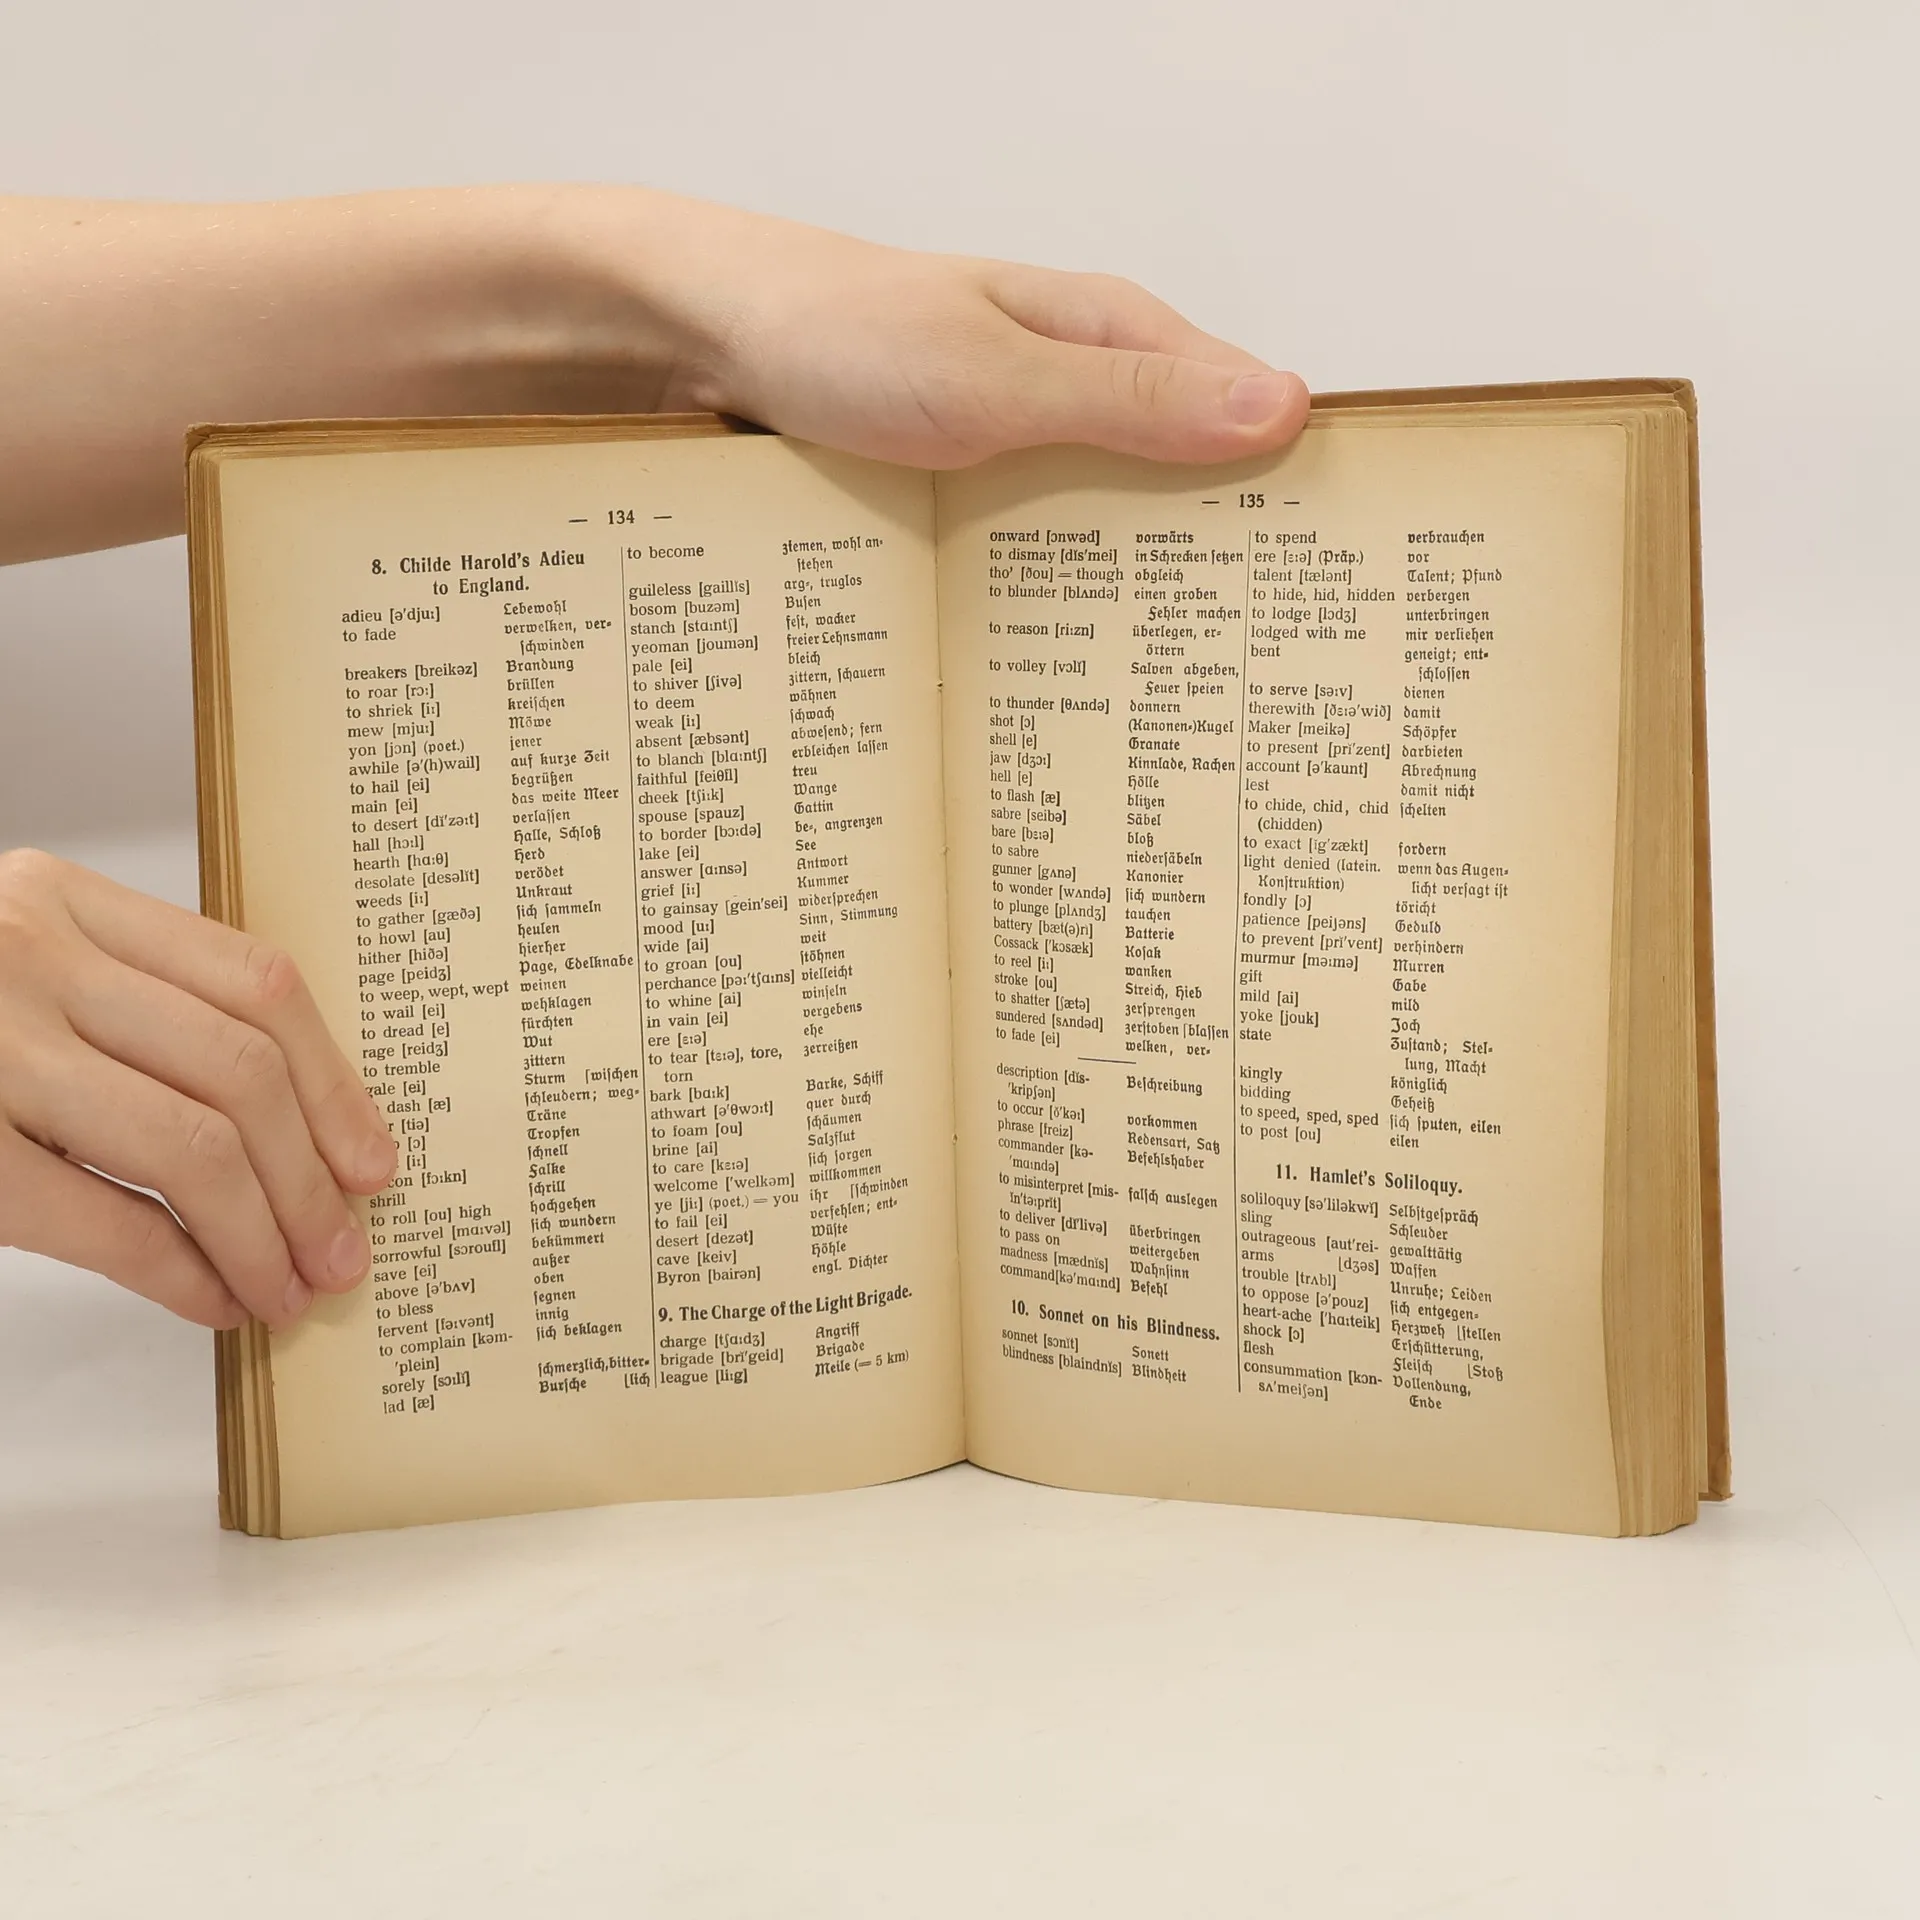 — 134 —
8. Childe Harold's Adieu
to England.
adieu [ə'djuː] Lebewohl
to fade verwelken, ver-
ſchwinden
breakers [breikəz] Brandung
to roar [rɔː] brüllen
to shriek [iː] kreiſchen
mew [mjuː] Möwe
yon [jɔn] (poet.) jener
awhile [ə'(h)wail] auf kurze Zeit
to hail [ei] begrüßen
main [ei] das weite Meer
to desert [dĭ'zəːt] verlaſſen
hall [hɔːl] Halle, Schloß
hearth [hɑːθ] Herd
desolate [desəlĭt] verödet
weeds [iː] Unkraut
to gather [gæðə] ſich ſammeln
to howl [au] heulen
hither [hiðə] hierher
page [peidʒ] Page, Edelknabe
to weep, wept, wept weinen
to wail [ei] wehklagen
to dread [e] fürchten
rage [reidʒ] Wut
to tremble zittern
gale [ei] Sturm [wiſchen
dash [æ] ſchleudern; weg-
[tiə] Träne
[ɔ] Tropfen
[iː] ſchnell
con [fɔːkn] Falke
shrill ſchrill
to roll [ou] high hochgehen
to marvel [mɑːvəl] ſich wundern
sorrowful [sɔroufl] bekümmert
save [ei] außer
above [ə'bʌv] oben
to bless ſegnen
fervent [fəːvənt] innig
to complain [kəm- ſich beklagen
'plein]
sorely [sɔːlĭ] ſchmerzlich, bitter-
lad [æ] Burſche [lich
to become ziemen, wohl an-
ſtehen
guileless [gaillĭs] arg-, truglos
bosom [buzəm] Buſen
stanch [stɑːntʃ] feſt, wacker
yeoman [joumən] freier Lehnsmann
pale [ei] bleich
to shiver [ʃivə] zittern, ſchauern
to deem wähnen
weak [iː] ſchwach
absent [æbsənt] abweſend; fern
to blanch [blɑːntʃ] erbleichen laſſen
faithful [feiθfl] treu
cheek [tʃiːk] Wange
spouse [spauz] Gattin
to border [bɔːdə] be-, angrenzen
lake [ei] See
answer [ɑːnsə] Antwort
grief [iː] Kummer
to gainsay [gein'sei] widerſprechen
mood [uː] Sinn, Stimmung
wide [ai] weit
to groan [ou] ſtöhnen
perchance [pəː'tʃɑːns] vielleicht
to whine [ai] winſeln
in vain [ei] vergebens
ere [ɛːə] ehe
to tear [tɛːə], tore, zerreißen
torn
bark [bɑːk] Barke, Schiff
athwart [ə'θwɔːt] quer durch
to foam [ou] ſchäumen
brine [ai] Salzflut
to care [kɛːə] ſich ſorgen
welcome ['welkəm] willkommen
ye [jiː] (poet.) = you ihr [ſchwinden
to fail [ei] verfehlen; ent-
desert [dezət] Wüſte
cave [keiv] Höhle
Byron [bairən] engl. Dichter
9. The Charge of the Light Brigade.
charge [tʃɑːdʒ] Angriff
brigade [brĭ'geid] Brigade
league [liːg] Meile (= 5 km)
— 135 —
onward [ɔnwəd] vorwärts
to dismay [dĭs'mei] in Schrecken ſetzen
tho' [ðou] = though obgleich
to blunder [blʌndə] einen groben
Fehler machen
to reason [riːzn] überlegen, er-
örtern
to volley [vɔlĭ] Salven abgeben,
Feuer ſpeien
to thunder [θʌndə] donnern
shot [ɔ] (Kanonen-)Kugel
shell [e] Granate
jaw [dʒɔː] Kinnlade, Rachen
hell [e] Hölle
to flash [æ] blitzen
sabre [seibə] Säbel
bare [bɛːə] bloß
to sabre niederſäbeln
gunner [gʌnə] Kanonier
to wonder [wʌndə] ſich wundern
to plunge [plʌndʒ] tauchen
battery [bæt(ə)rĭ] Batterie
Cossack ['kɔsæk] Koſak
to reel [iː] wanken
stroke [ou] Streich, Hieb
to shatter [ʃætə] zerſprengen
sundered [sʌndəd] zerſtoben [blaſſen
to fade [ei] welken, ver-
description [dĭs- Beſchreibung
'kripʃən]
to occur [ŏ'kəː] vorkommen
phrase [freiz] Redensart, Satz
commander [kə- Befehlshaber
'mɑːndə]
to misinterpret [mis- falſch auslegen
ĭn'təːprĭt]
to deliver [dĭ'livə] überbringen
to pass on weitergeben
madness [mædnĭs] Wahnſinn
command [kə'mɑːnd] Befehl
10. Sonnet on his Blindness.
sonnet [sɔnĭt] Sonett
blindness [blaindnĭs] Blindheit
to spend verbrauchen
ere [ɛːə] (Präp.) vor
talent [tælənt] Talent; Pfund
to hide, hid, hidden verbergen
to lodge [lɔdʒ] unterbringen
lodged with me mir verliehen
bent geneigt; ent-
ſchloſſen
to serve [səːv] dienen
therewith [ðɛːə'wið] damit
Maker [meikə] Schöpfer
to present [prĭ'zent] darbieten
account [ə'kaunt] Abrechnung
lest damit nicht
to chide, chid, chid ſchelten
(chidden)
to exact [ĭg'zækt] fordern
light denied (latein. wenn das Augen-
Konſtruktion) licht verſagt iſt
fondly [ɔ] töricht
patience [peiʃəns] Geduld
to prevent [prĭ'vent] verhindern
murmur [məːmə] Murren
gift Gabe
mild [ai] mild
yoke [jouk] Joch
state Zuſtand; Stel-
lung, Macht
kingly königlich
bidding Geheiß
to speed, sped, sped ſich ſputen, eilen
to post [ou] eilen
11. Hamlet's Soliloquy.
soliloquy [sə'liləkwĭ] Selbſtgeſpräch
sling Schleuder
outrageous [aut'rei- gewalttätig
arms [dʒəs] Waffen
trouble [trʌbl] Unruhe; Leiden
to oppose [ə'pouz] ſich entgegen-
heart-ache ['hɑːteik] Herzweh [ſtellen
shock [ɔ] Erſchütterung,
flesh Fleiſch [Stoß
consummation [kɔn- Vollendung,
sʌ'meiʃən] Ende